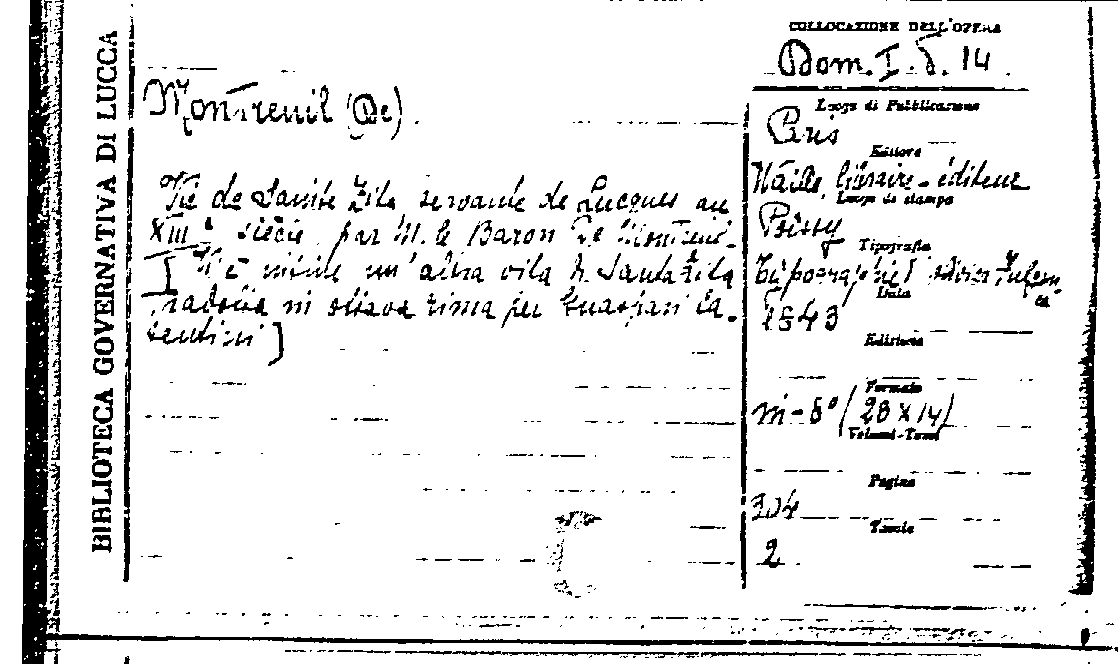 BIBLIOTECA GOVERNATIVA DI LUCCA
Montreuil (De).
Vie de Sainte Zita servante de Lucques au
XIIIe siècle, par M. le Baron De Montreuil.
[Vi è unita un'altra vita di Santa Zita
ridotta in ottava rima per Guaspari Ca-
sentini]
COLLOCAZIONE DELL'OPERA
Dom. I. δ. 14
Luogo di Pubblicazione
Paris
Editore
Waille, libraire-éditeur
Luogo di stampa
Poissy
Tipografia
Typographie Olivier-Fulgen-
ce
Data
1843
Edizione
Formato
in-8° (28 x 14)
Volumi-Tomi
Pagine
304
Tavole
2